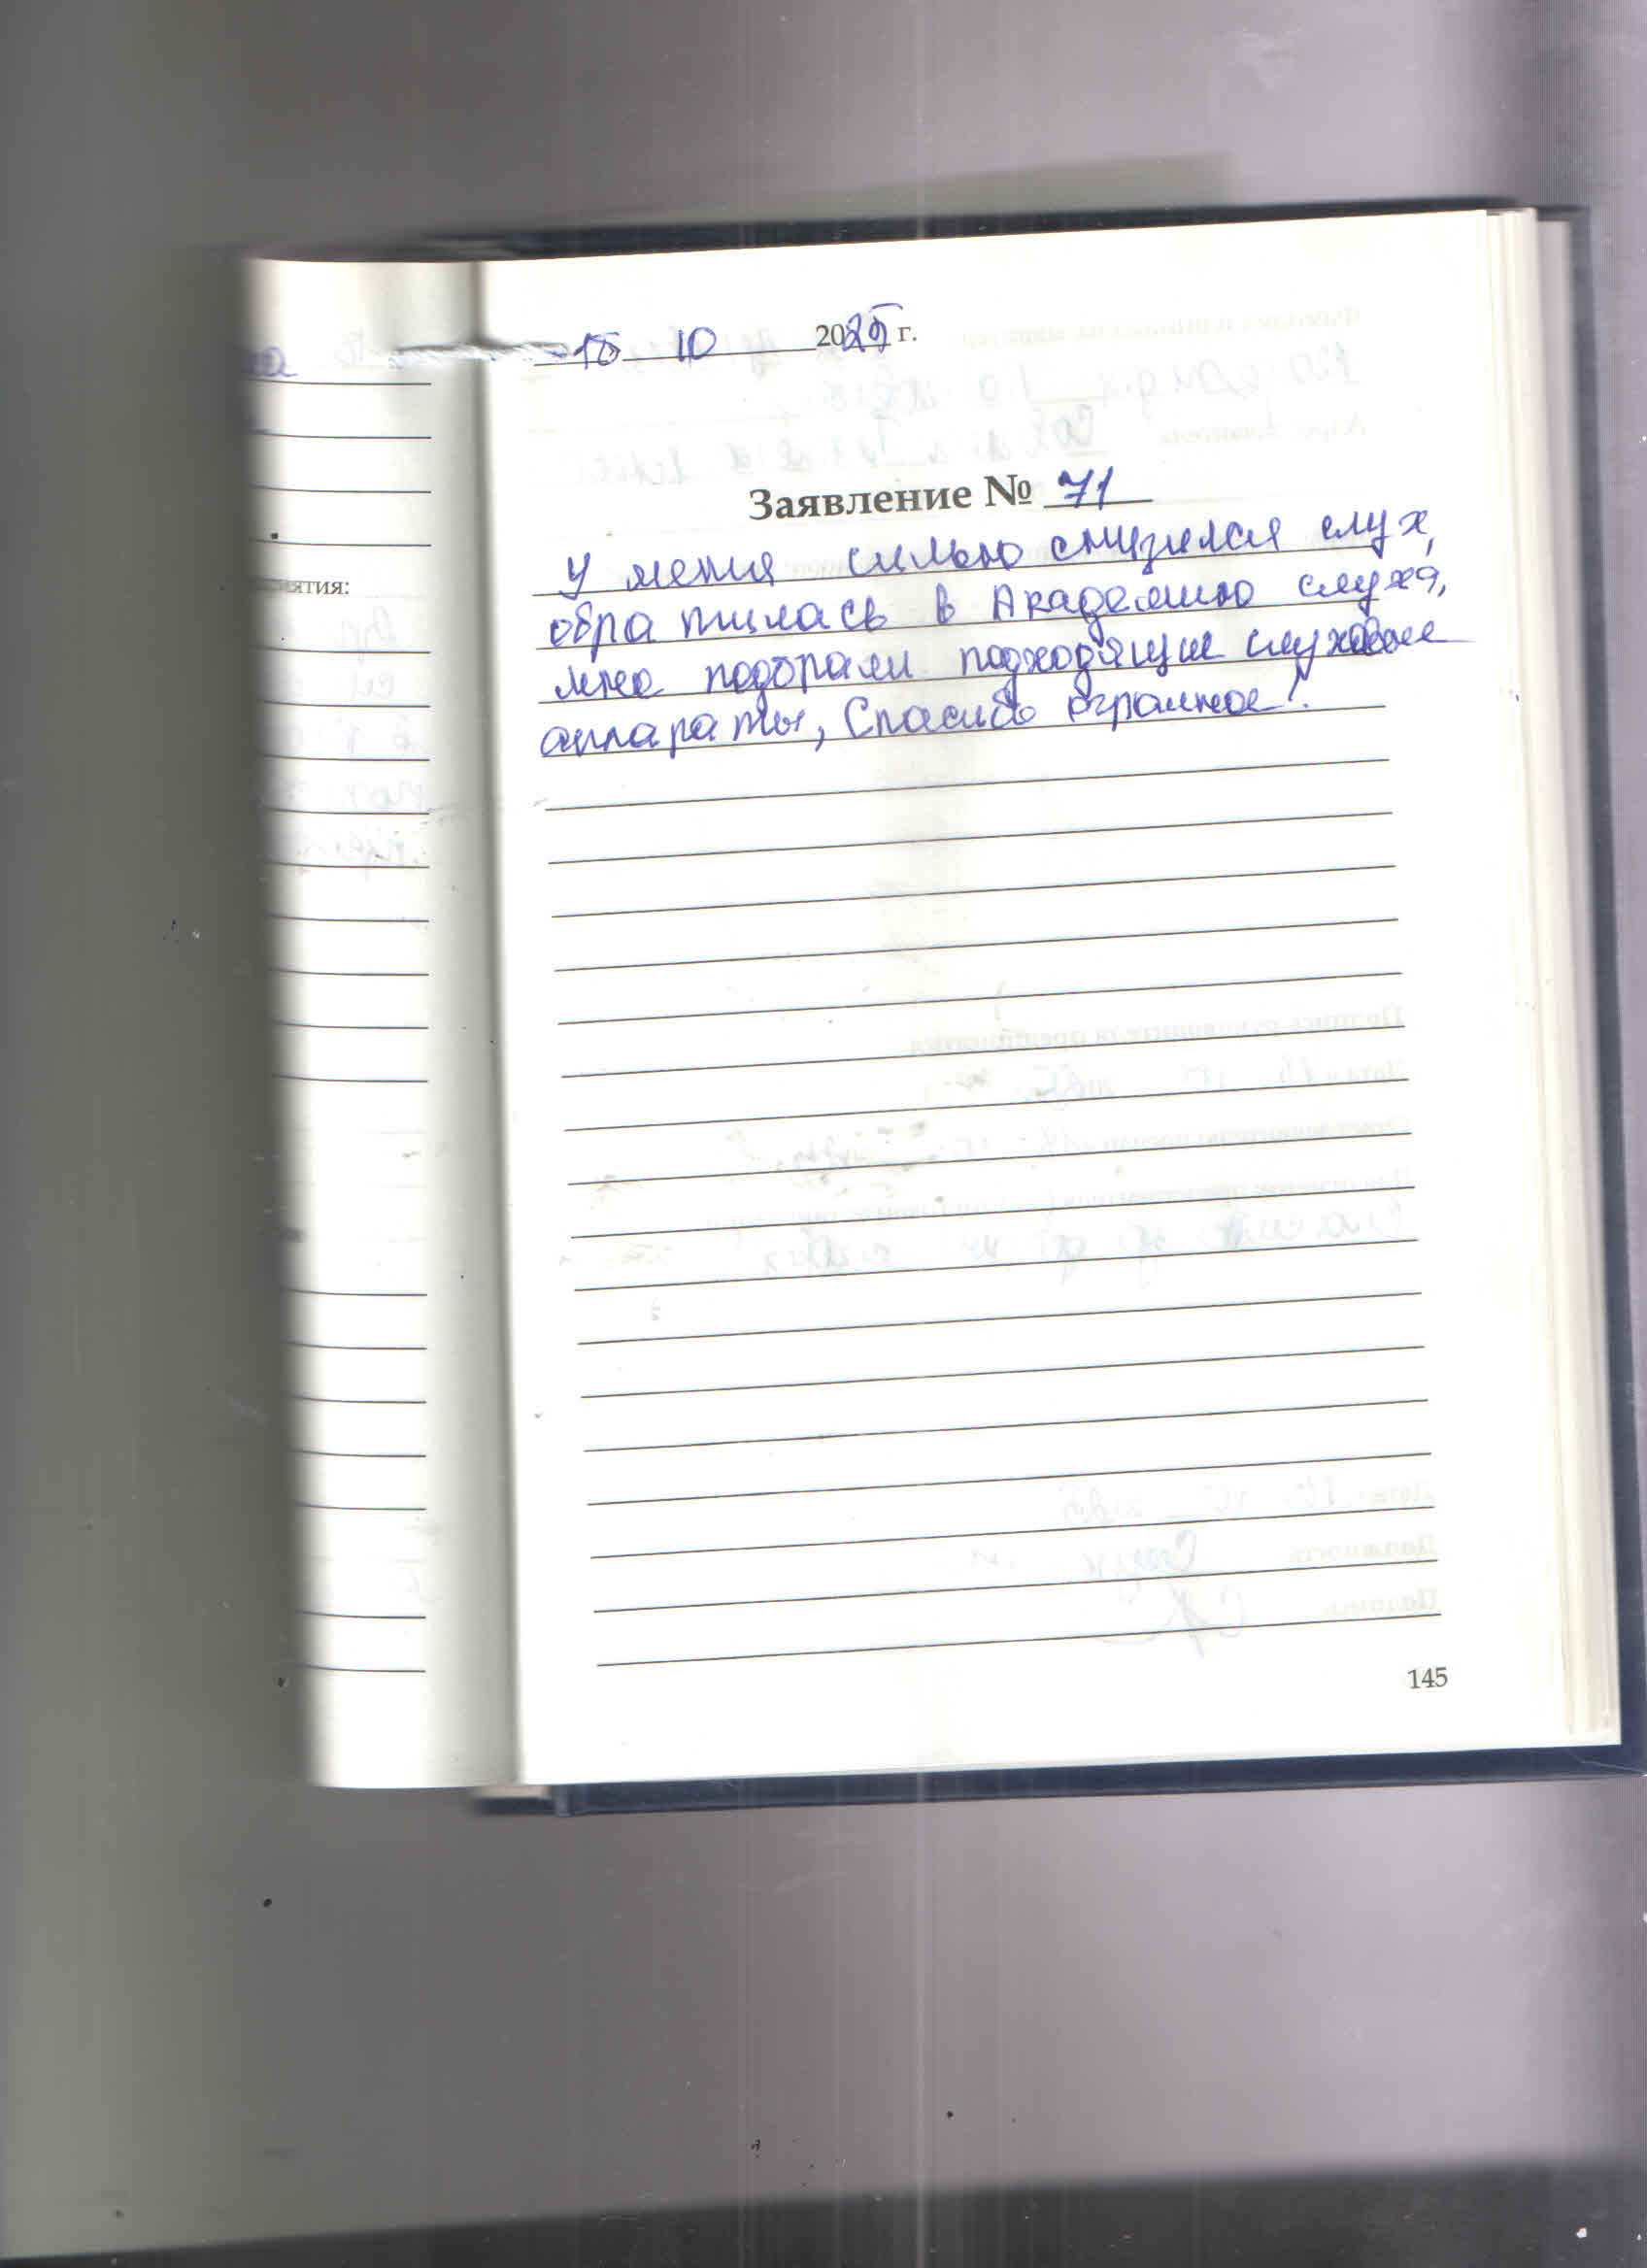 15 10 2025 г.
Заявление № 71
ятия:
У меня сильно снизился слух,
обратилась в Академию слуха,
мне подобрали подходящие слуховые
аппараты, Спасибо огромное!
145